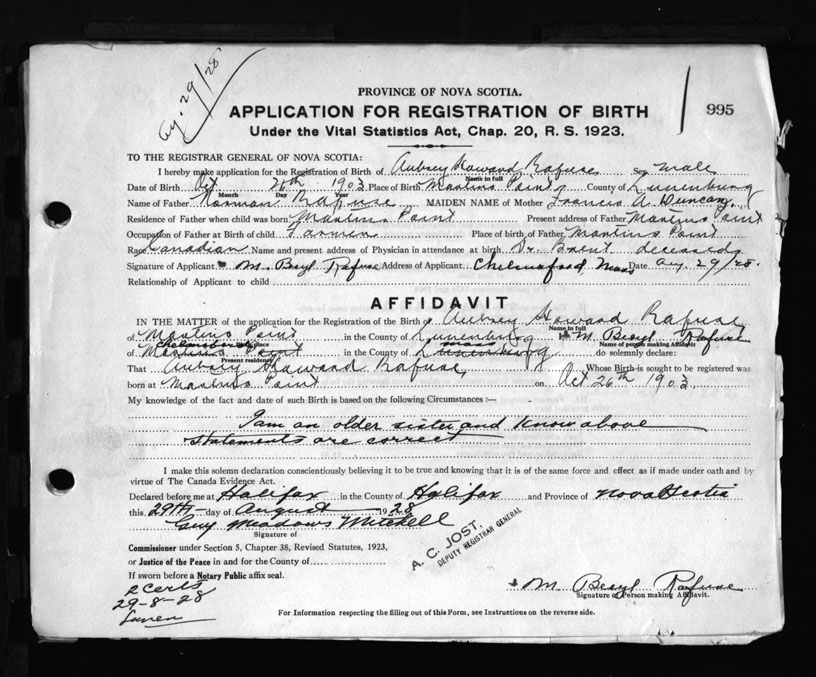 Ag. 29/28
PROVINCE OF NOVA SCOTIA.
995
APPLICATION FOR REGISTRATION OF BIRTH
Under the Vital Statistics Act, Chap. 20, R. S. 1923.
TO THE REGISTRAR GENERAL OF NOVA SCOTIA:
I hereby make application for the Registration of Birth of Aubrey Howard Rafuse Sex male
Name in full
Date of Birth Oct 26th 1903 Place of Birth Martins Point County of Lunenburg
Month Day Year
Name of Father Norman Rafuse MAIDEN NAME of Mother Frances A. Duncan
Residence of Father when child was born Martins Point Present address of Father Martins Point
Occupation of Father at Birth of child Farmer Place of birth of Father Martins Point
Race Canadian Name and present address of Physician in attendance at birth Dr. deceased
Signature of Applicant M. Beryl Rafuse Address of Applicant Chelmsford Mass Date Aug. 29/28.
Relationship of Applicant to child
AFFIDAVIT
IN THE MATTER of the application for the Registration of the Birth of Aubrey Howard Rafuse
Name in full
of Martins Point in the County of Lunenburg I, M. Beryl Rafuse
Chelmsford place mass Name of person making Affidavit
of Martins Point in the County of Lunenburg do solemnly declare:
Present residence
That Aubrey Howard Rafuse, Whose Birth is sought to be registered was
born at Martins Point on Oct 26th 1903.
My knowledge of the fact and date of such Birth is based on the following Circumstances :—
I am an older sister and know above
statements are correct
I make this solemn declaration conscientiously believing it to be true and knowing that it is of the same force and effect as if made under oath and by
virtue of The Canada Evidence Act.
Declared before me at Halifax in the County of Halifax and Province of Nova Scotia
this 29th day of August 1928
Guy Meadows Mitchell
Signature of
Commissioner under Section 5, Chapter 38, Revised Statutes, 1923,
A. C. JOST.
DEPUTY REGISTRAR GENERAL
or Justice of the Peace in and for the County of
If sworn before a Notary Public affix seal.
2 Certs
29-8-28
M. Beryl Rafuse
Signature of Person making Affidavit.
Lunen
For Information respecting the filling out of this Form, see Instructions on the reverse side.